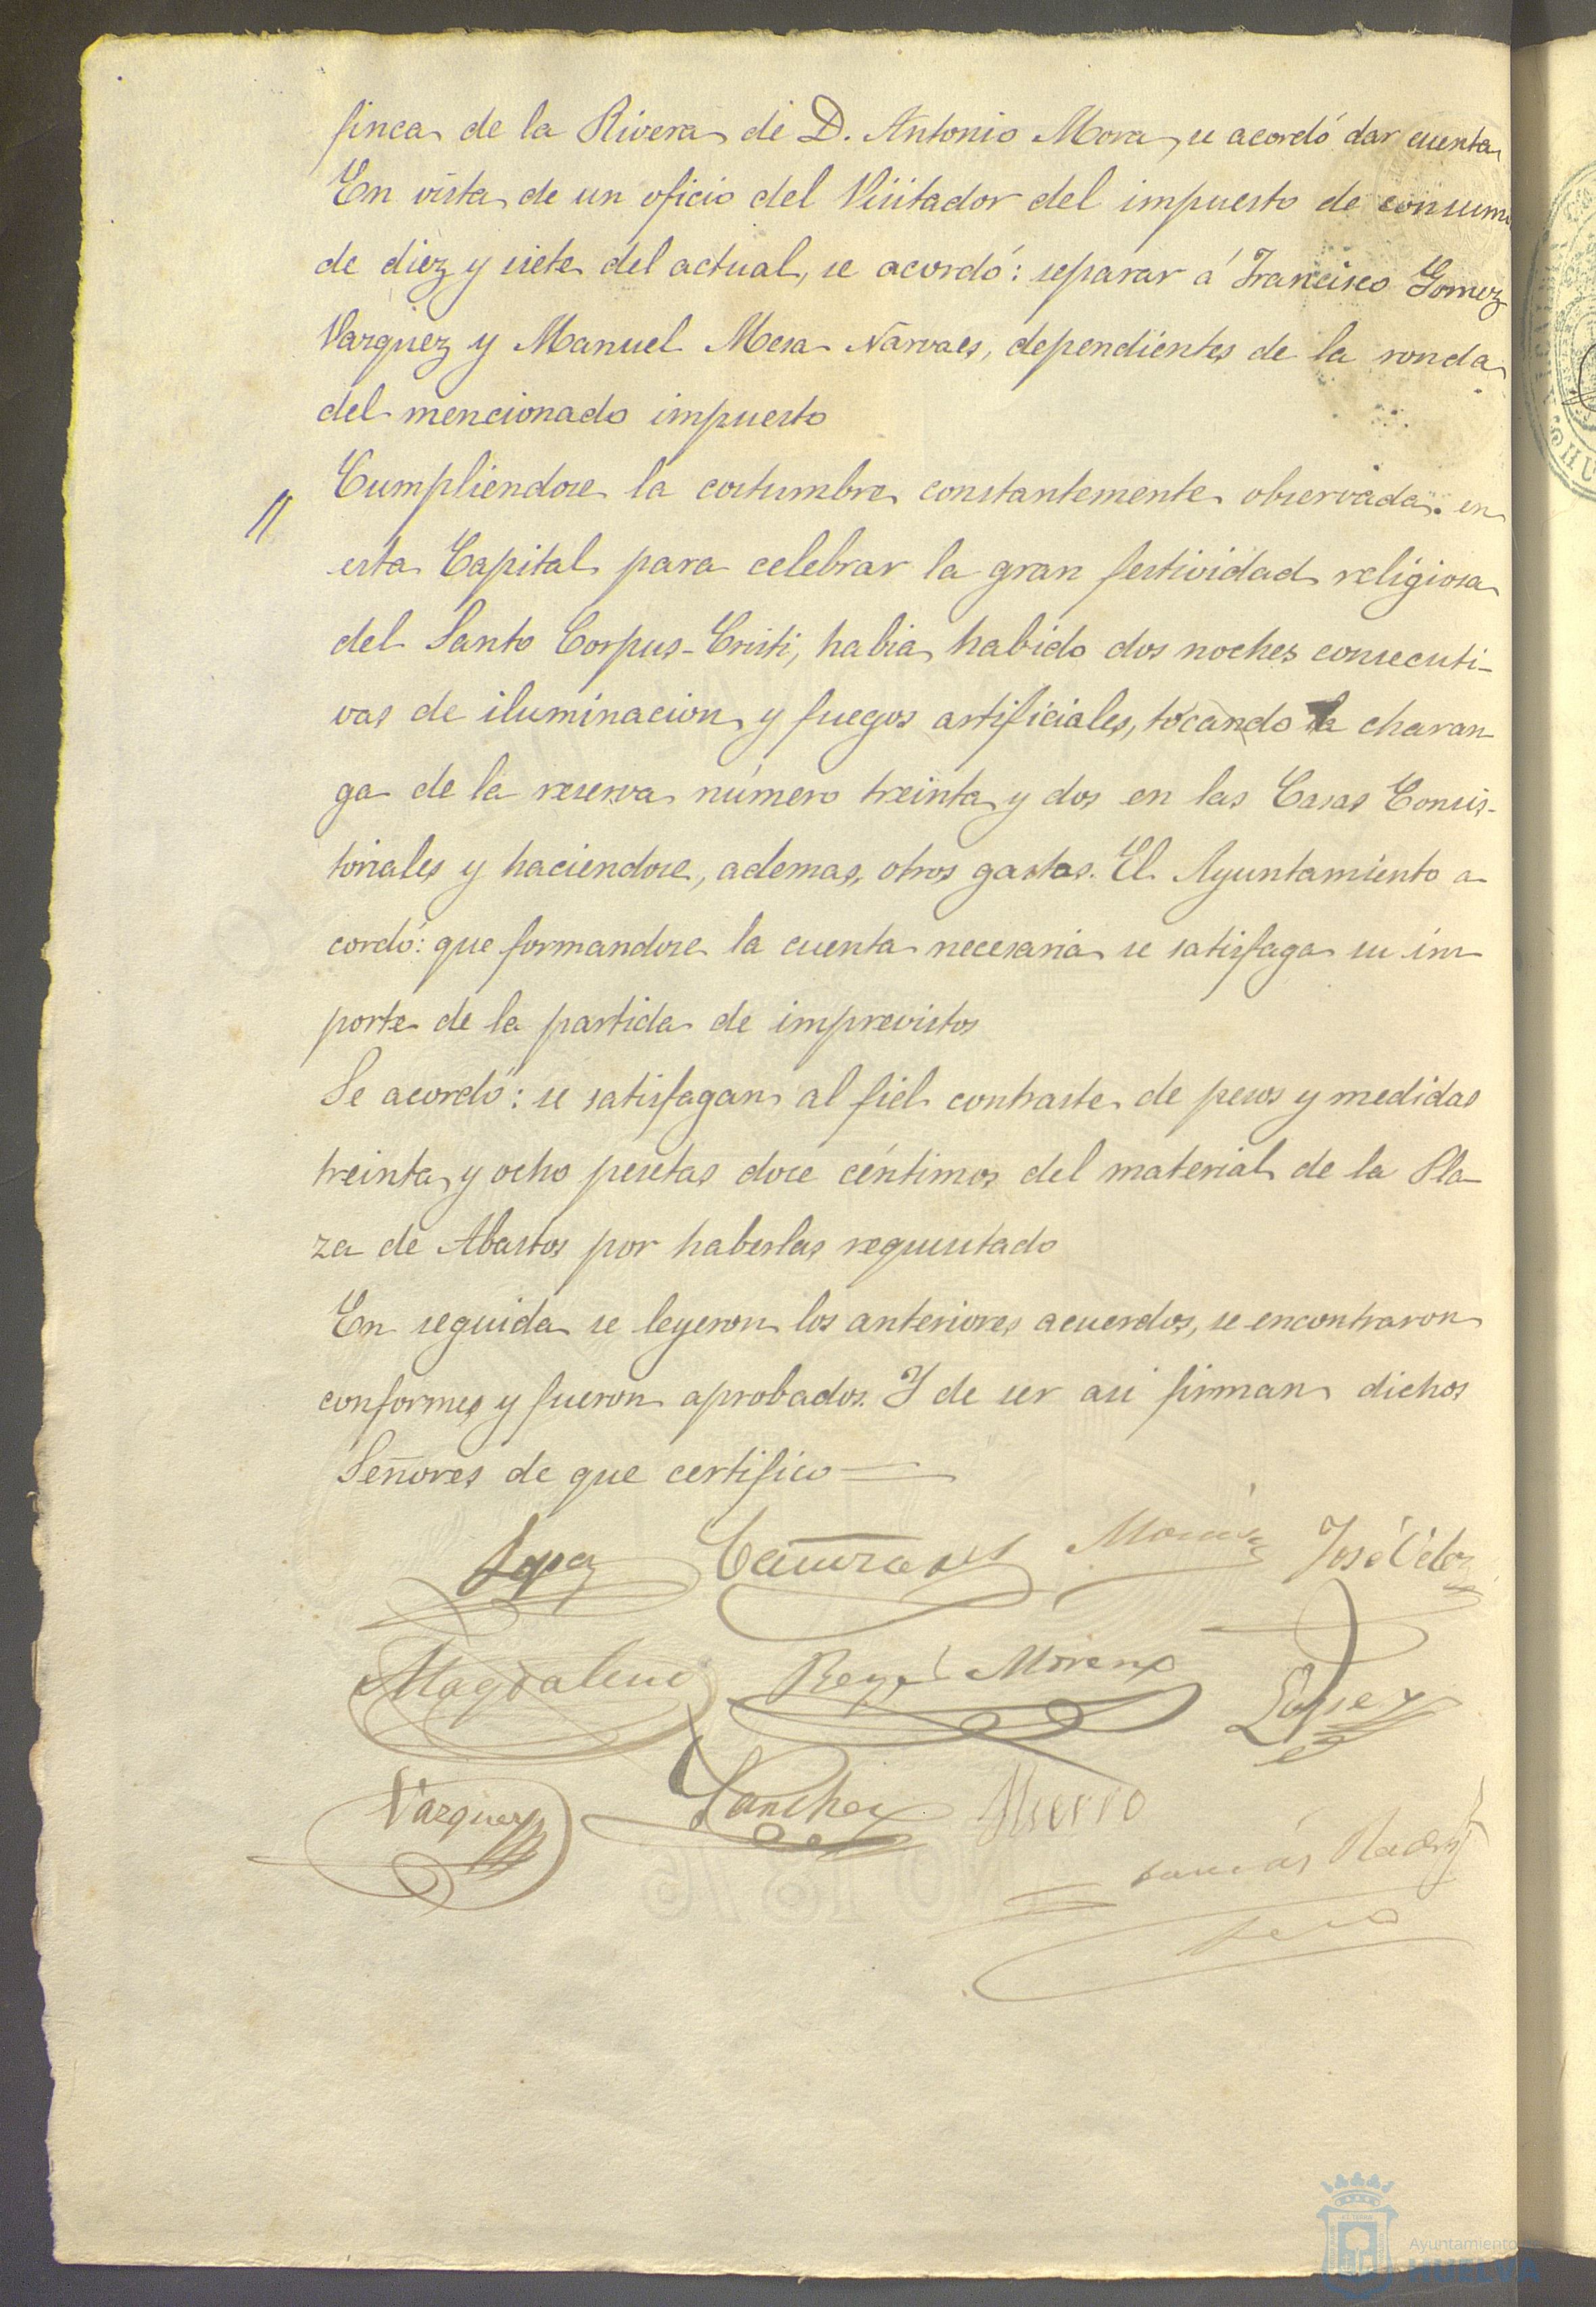 finca de la Rivera de D. Antonio Mora, se acordó dar cuenta
En vista de un oficio del Visitador del impuesto de consum
de diez y siete del actual, se acordó: separar á Francisco Gomez
Vazquez y Manuel Mesa Narvaes, dependientes de la ronda
del mencionado impuesto
Cumpliendose la costumbre constantemente observada en
esta Capital para celebrar la gran festividad religiosa
del Santo Corpus-Cristi, habia habido dos noches consecuti-
vas de iluminacion y fuegos artificiales, tocando la charan
ga de la reserva número treinta y dos en las Casas Consis-
toriales y haciendose, ademas, otros gastos. El Ayuntamiento a
cordó: que formandose la cuenta necesaria se satisfaga su im
porte de la partida de imprevistos
Se acordó: se satisfagan al fiel contraste de pesos y medidas
treinta y ocho pesetas doce céntimos del material de la Pla-
za de Abastos por haberlas requisitado
En seguida se leyeron los anteriores acuerdos, se encontraron
conformes y fueron aprobados. Y de ser asi firman dichos
Señores de que certifico
Lopez José Velez
Magdaleno Moreno
Vazquez Sanchez
AÑO 1876
Ayuntamiento
HUELVA